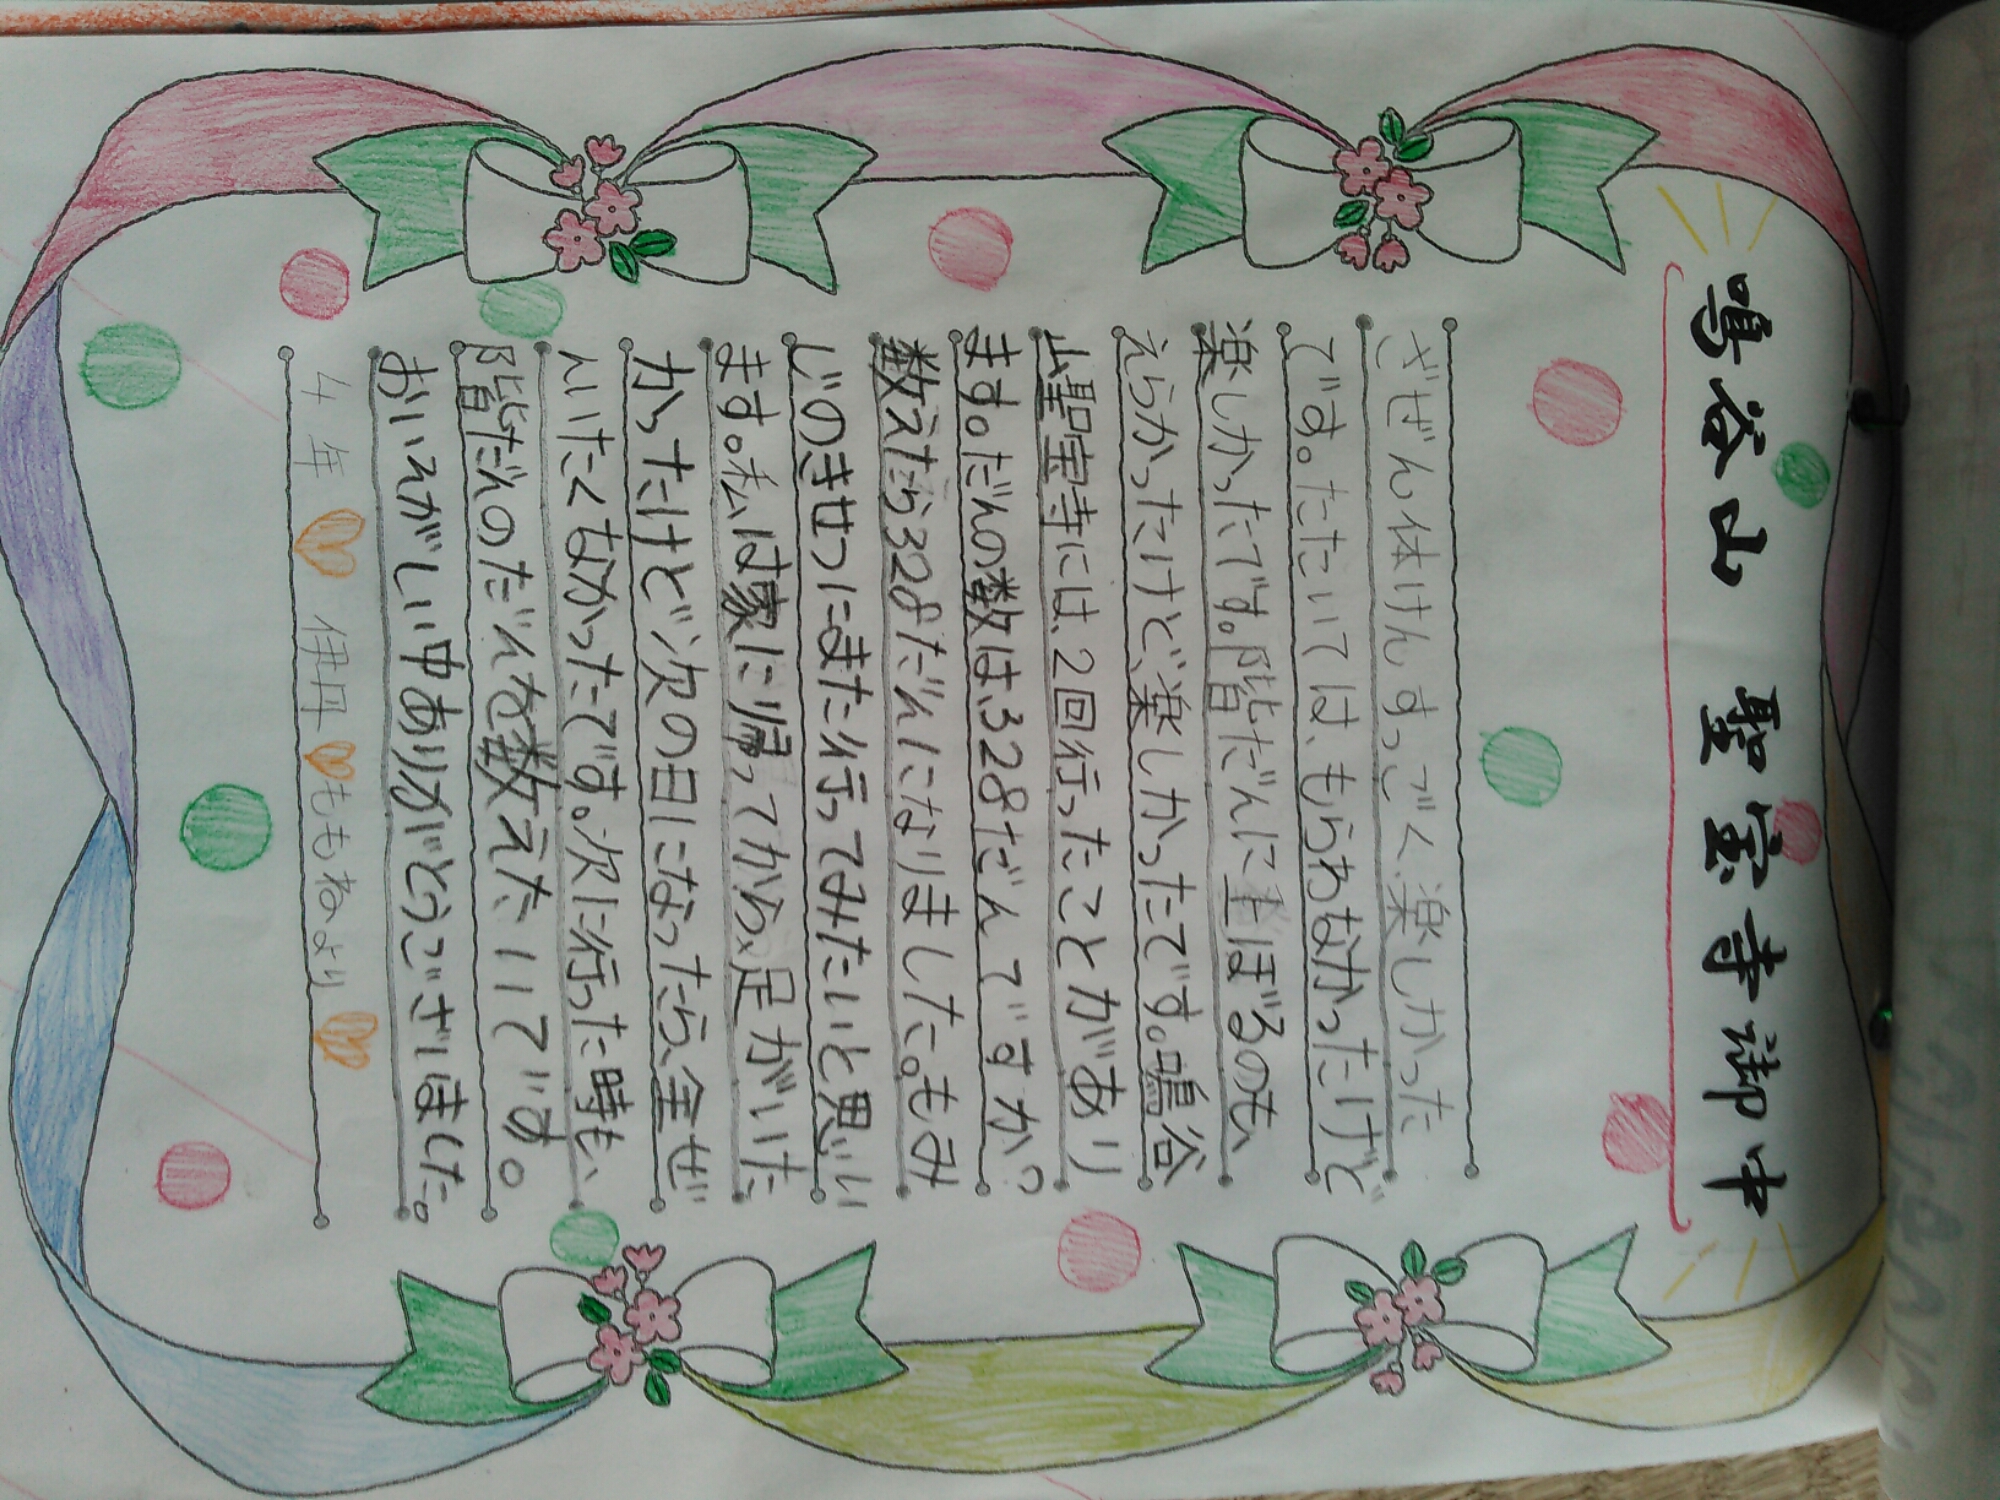 鳴谷山 聖宝寺御中
ざぜん体けんすっごく楽しかった
です。たたいては、もらわなかったけど
楽しかったです。階だんにのぼるのも、
えらかったけど、楽しかったです。鳴谷
山聖宝寺には、2回行ったことがあり
ます。だんの数は、328だんですか?
数えたら328だんになりました。もみ
じのきせつにまた行ってみたいと思い
ます。私は家に帰ってから、足がいた
かったけど次の日になったら、全ぜ
んいたくなかったです。次に行った時も、
階だんのだんを数えたいです。
おいそがしい中ありがとうございました。
4年 伊丹 ももねより